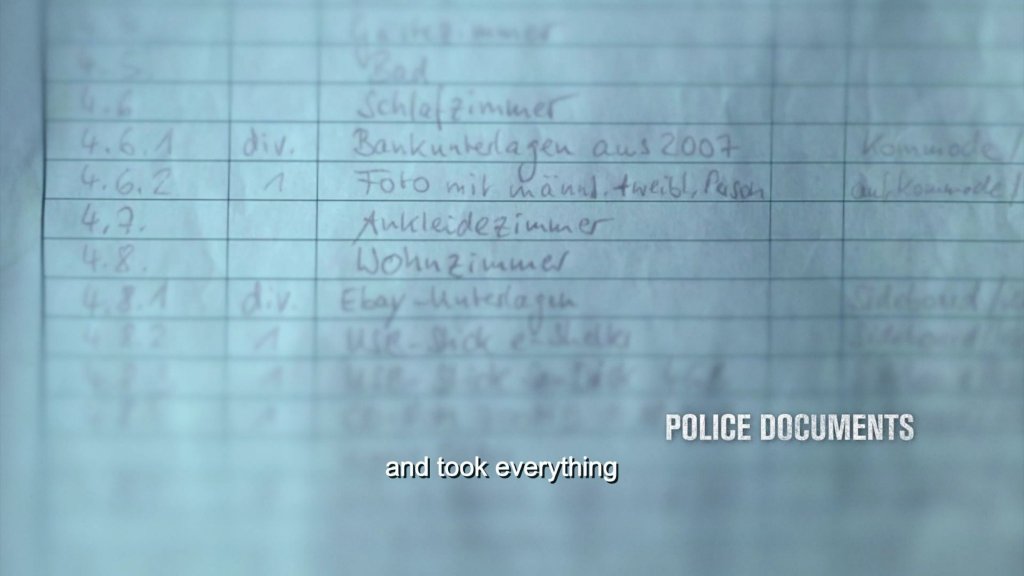 Gästezimmer
4.5 Bad
4.6 Schlafzimmer
4.6.1 div. Bankunterlagen aus 2007 Kommode/
4.6.2 1 Foto mit männl. + weibl. Person auf Kommode/
4.7. Ankleidezimmer
4.8. Wohnzimmer
4.8.1 div. Ebay-Unterlagen Sideboard/
4.8.2 1 USB-Stick Sideboard/
1 USB-Stick
1
POLICE DOCUMENTS
and took everything